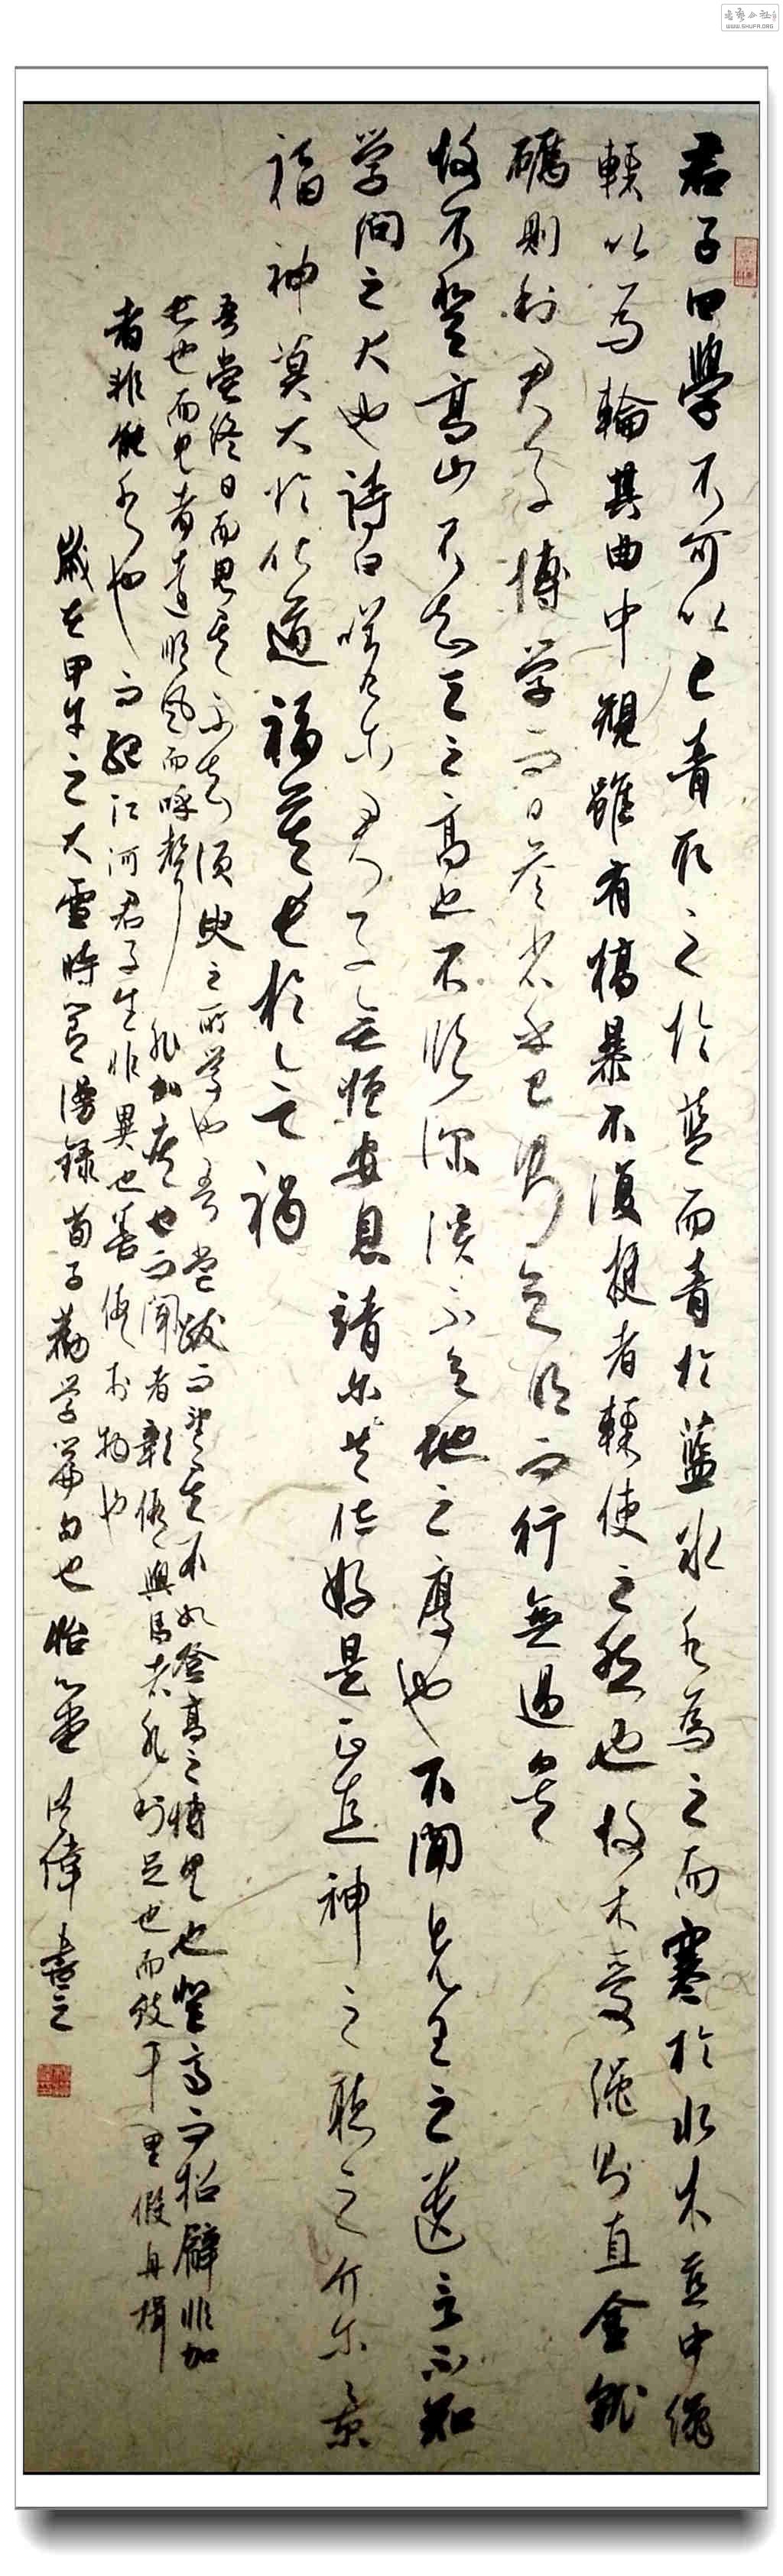 君子曰學不可以已青取之於藍而青於藍冰水為之而寒於水木直中繩
輮以為輪其曲中規雖有槁暴不復挺者輮使之然也故木受繩則直金就
礪則利君子博学而日參省乎己則知明而行無過矣
故不登高山不知天之高也不臨深谿不知地之厚也不聞先王之遺言不知
学问之大也詩曰嗟尔君子無恒安息靖尔共位好是正直神之聽之介尔景
福神莫大於化道福莫長於無禍
吾嘗終日而思矣不如須臾之所学也吾嘗跂而望矣不如登高之博見也登高而招臂非加
長也而見者遠順风而呼聲非加疾也而聞者彰假輿馬者非利足也而致千里假舟楫
者非能水也而絕江河君子生非異也善假於物也
歲在甲午之大雪時節漫錄荀子勸学篇句也怡 偉書之
WWW.SHUFA.ORG